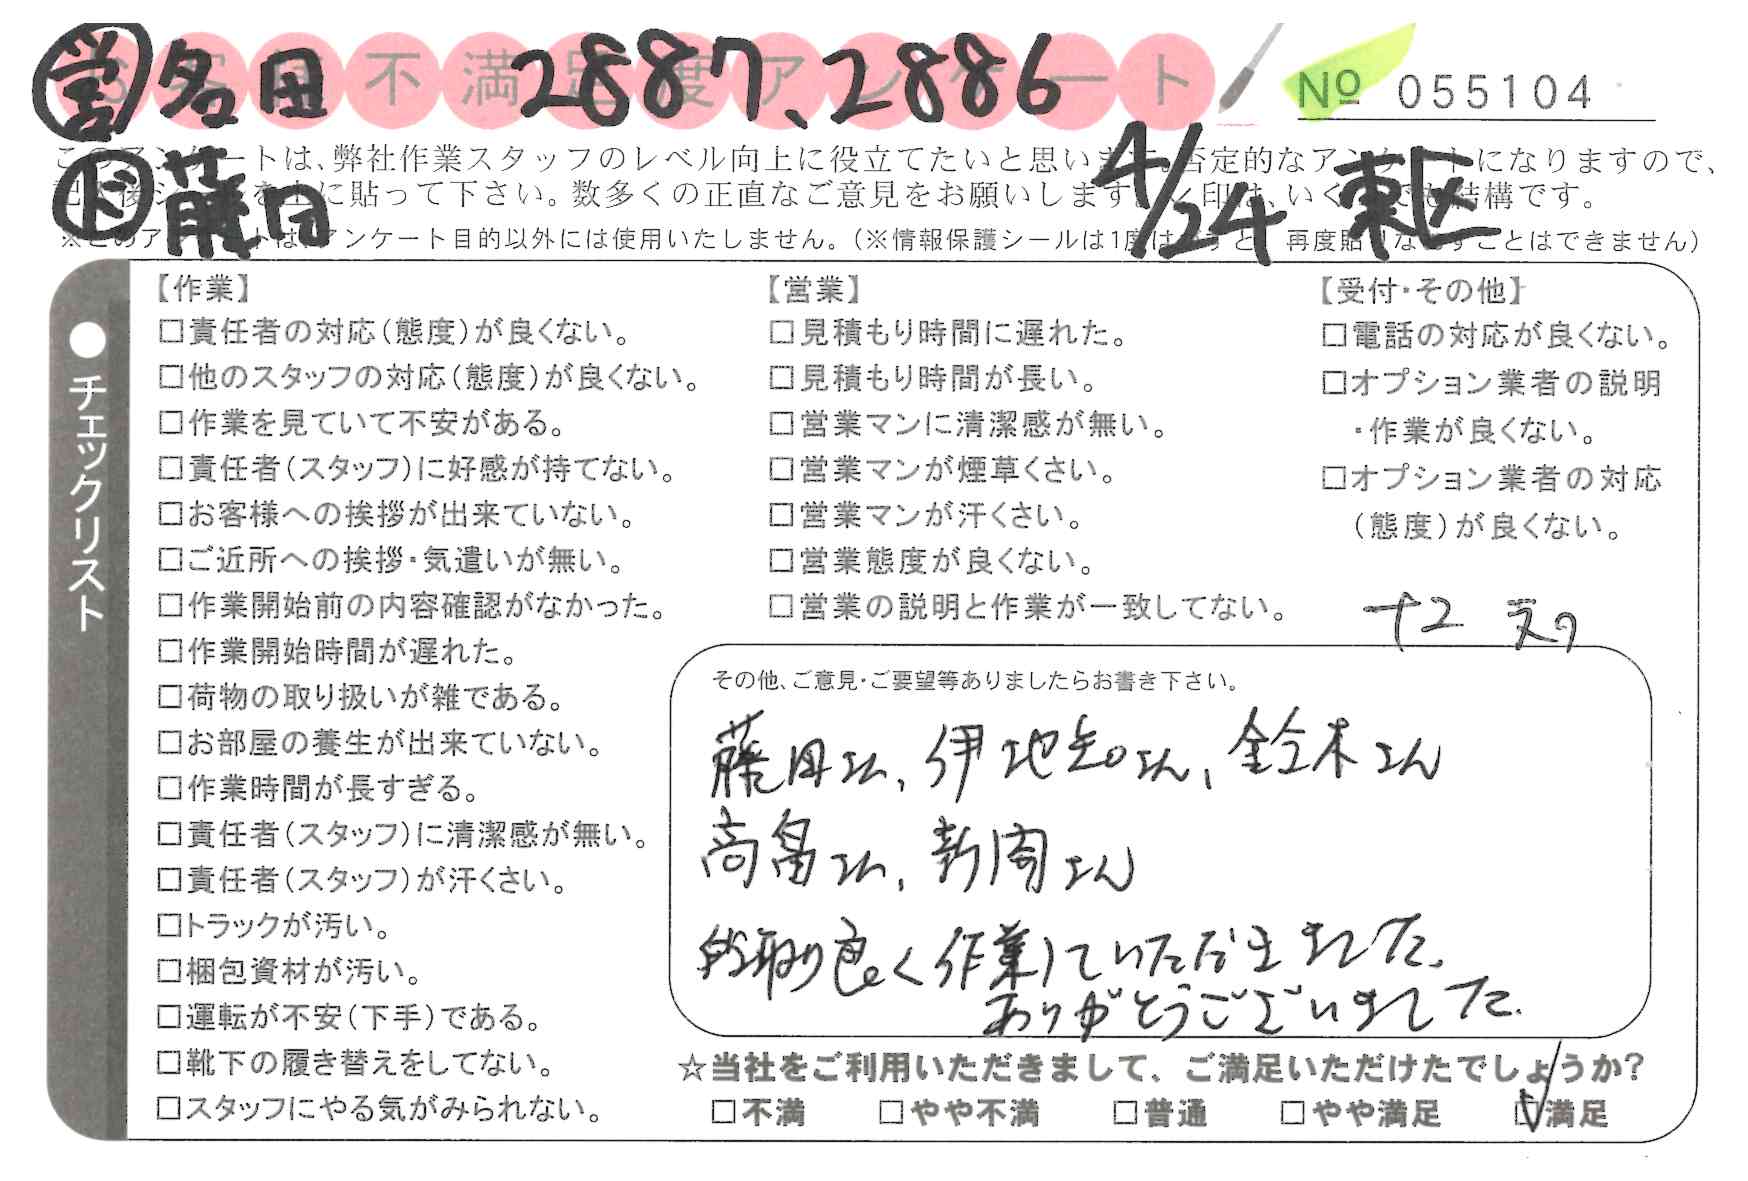 営 名田 2887、2886
お客様不満足度アンケート
№ 055104
このアンケートは、弊社作業スタッフのレベル向上に役立てたいと思います。否定的なアンケートになりますので、
ド 藤田 4/24 東区
後シールを上に貼って下さい。数多くの正直なご意見をお願いします。
印は、いくつでも結構です。
※このアンケートは、アンケート目的以外には使用いたしません。(※情報保護シールは1度はがすと、再度貼りなおすことはできません)
●チェックリスト
【作業】
□責任者の対応(態度)が良くない。
□他のスタッフの対応(態度)が良くない。
□作業を見ていて不安がある。
□責任者(スタッフ)に好感が持てない。
□お客様への挨拶が出来ていない。
□ご近所への挨拶・気遣いが無い。
□作業開始前の内容確認がなかった。
□作業開始時間が遅れた。
□荷物の取り扱いが雑である。
□お部屋の養生が出来ていない。
□作業時間が長すぎる。
□責任者(スタッフ)に清潔感が無い。
□責任者(スタッフ)が汗くさい。
□トラックが汚い。
□梱包資材が汚い。
□運転が不安(下手)である。
□靴下の履き替えをしてない。
□スタッフにやる気がみられない。
【営業】
□見積もり時間に遅れた。
□見積もり時間が長い。
□営業マンに清潔感が無い。
□営業マンが煙草くさい。
□営業マンが汗くさい。
□営業態度が良くない。
□営業の説明と作業が一致してない。
【受付・その他】
□電話の対応が良くない。
□オプション業者の説明
・作業が良くない。
□オプション業者の対応
(態度)が良くない。
その他、ご意見・ご要望等ありましたらお書き下さい。
藤田さん、伊地知さん、鈴木さん
高畠さん、新岡さん
段取り良く作業していただきました。
ありがとうございました。
☆当社をご利用いただきまして、ご満足いただけたでしょうか?
□不満 □やや不満 □普通 □やや満足 ☑満足